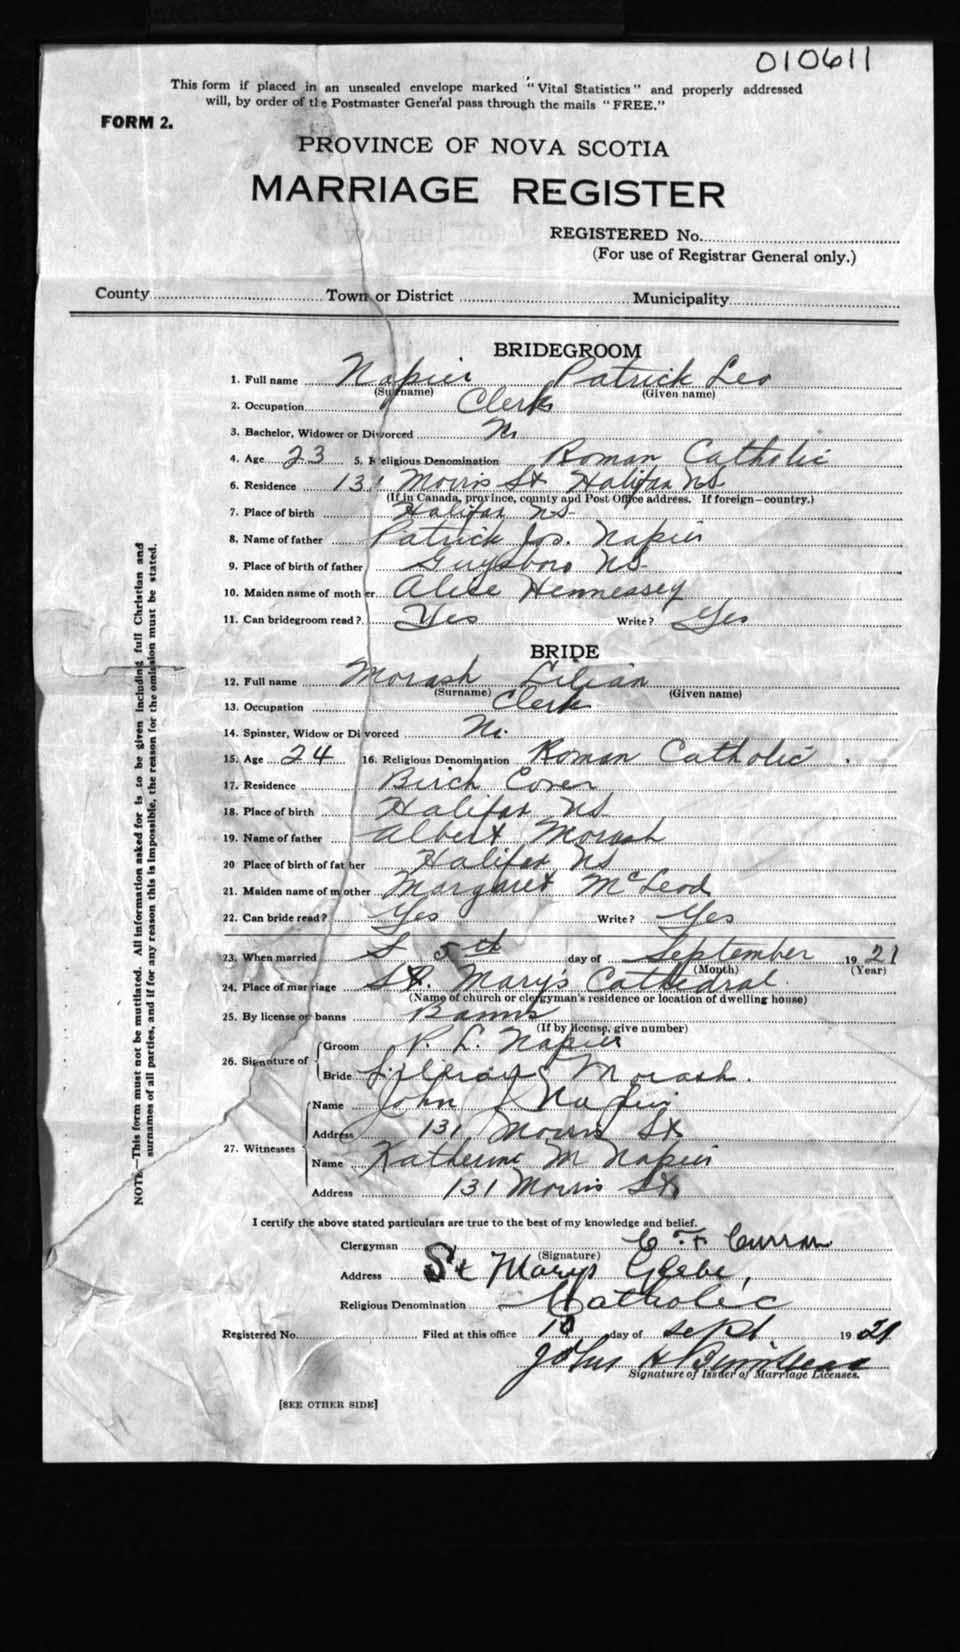 010611
This form if placed in an unsealed envelope marked "Vital Statistics" and properly addressed
will, by order of the Postmaster General pass through the mails "FREE."
FORM 2.
PROVINCE OF NOVA SCOTIA
MARRIAGE REGISTER
REGISTERED No.
(For use of Registrar General only.)
County Town or District Municipality
BRIDEGROOM
1. Full name Napier Patrick Leo
(Surname) (Given name)
2. Occupation Clerk
3. Bachelor, Widower or Divorced
4. Age 23 5. Religious Denomination Roman Catholic
6. Residence 131 Morris St Halifax NS
(If in Canada, province, county and Post Office address. If foreign—country.)
7. Place of birth Halifax NS
8. Name of father Patrick Jos. Napier
9. Place of birth of father Guysboro NS
10. Maiden name of mother Alice Hennessey
11. Can bridegroom read? Yes Write? Yes
BRIDE
12. Full name Morash Lilian
(Surname) (Given name)
13. Occupation Clerk
14. Spinster, Widow or Divorced
15. Age 24 16. Religious Denomination Roman Catholic
17. Residence Birch Cover
18. Place of birth Halifax NS
19. Name of father Albert Morash
20 Place of birth of father Halifax NS
21. Maiden name of mother Margaret McLeod
22. Can bride read? Yes Write? Yes
23. When married 5th day of September 1921
(Month) (Year)
24. Place of marriage St. Mary's Cathedral.
(Name of church or clergyman's residence or location of dwelling house)
25. By license or banns Banns
(If by license, give number)
26. Signature of
Groom P. L. Napier
Bride Lillian Morash.
27. Witnesses
Name John J Napier
Address 131 Morris St
Name Katherine M Napier
Address 131 Morris St
I certify the above stated particulars are true to the best of my knowledge and belief.
Clergyman C. F. Curran
(Signature)
Address St Marys Glebe,
Religious Denomination Catholic
Registered No. Filed at this office 10 day of Sept 1921
John H
Signature of Issuer of Marriage Licenses.
[SEE OTHER SIDE]
NOTE.—This form must not be mutilated. All information asked for is to be given including full Christian and
surnames of all parties, and if for any reason this is impossible, the reason for the omission must be stated.